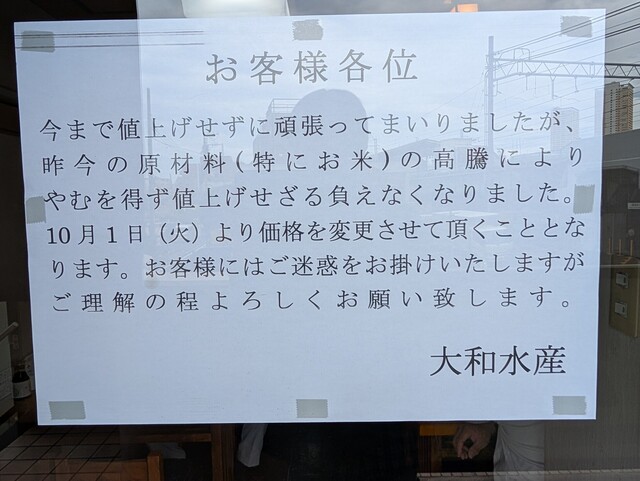 お客様各位
今まで値上げせずに頑張ってまいりましたが、
昨今の原材料(特にお米)の高騰により
やむを得ず値上げせざる負えなくなりました。
10月1日(火)より価格を変更させて頂くこととな
ります。お客様にはご迷惑をお掛けいたしますが
ご理解の程よろしくお願い致します。
大和水産